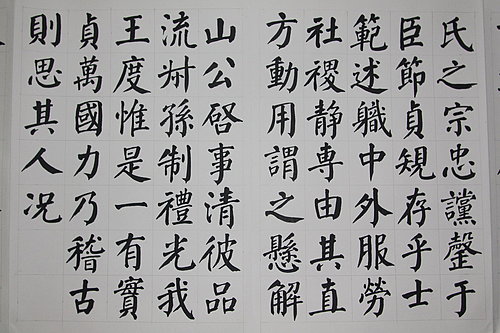 氏之宗忠讜罄于
臣節貞規存乎士
範述職中外服勞
社稷静專由其直
方動用謂之懸解
山公启事清彼品
流叔孫制禮光我
王度惟是一有實
貞萬國力乃稽古
則思其人况